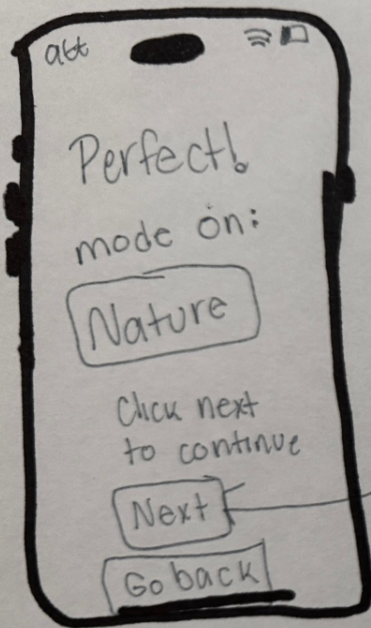 att
Perfect!
mode on:
Nature
Click next
to continue
Next
Go back